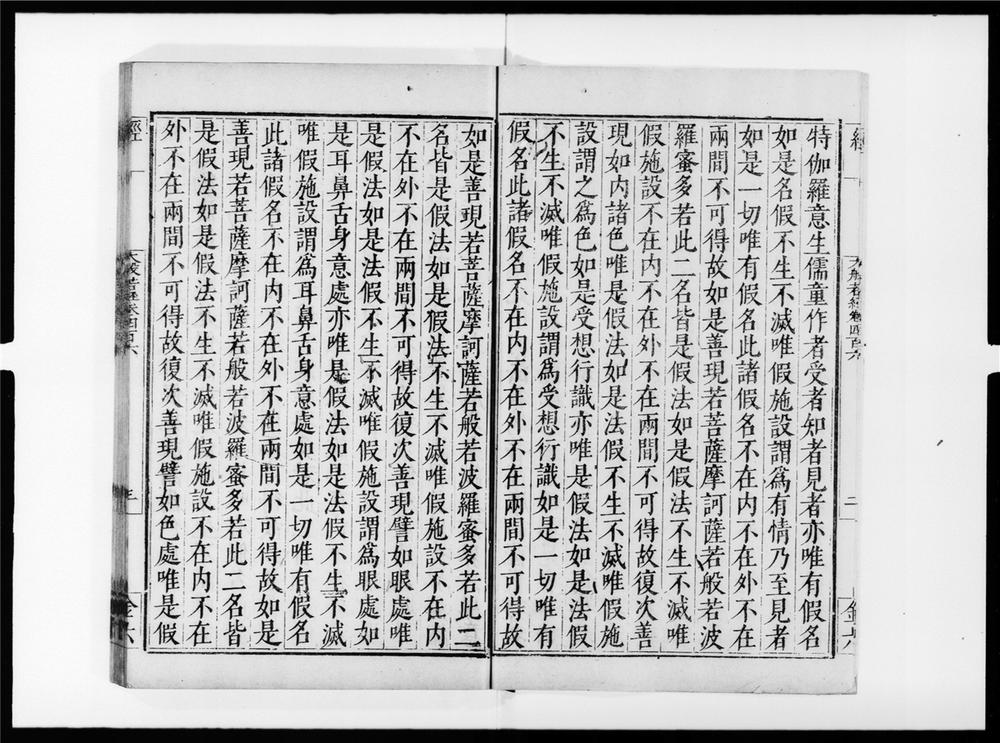 經
大般若經卷四百六
二
金六
特伽羅意生儒童作者受者知者見者亦唯有假名
如是名假不生不滅唯假施設謂爲有情乃至見者
如是一切唯有假名此諸假名不在内不在外不在
兩間不可得故如是善現若菩薩摩訶薩若般若波
羅蜜多若此二名皆是假法如是假法不生不滅唯
假施設不在内不在外不在兩間不可得故復次善
現如内諸色唯是假法如是法假不生不滅唯假施
設謂之爲色如是受想行識亦唯是假法如是法假
不生不滅唯假施設謂爲受想行識如是一切唯有
假名此諸假名不在内不在外不在兩間不可得故
如是善現若菩薩摩訶薩若般若波羅蜜多若此二
名皆是假法如是假法不生不滅唯假施設不在内
不在外不在兩間不可得故復次善現譬如眼處唯
是假法如是法假不生不滅唯假施設謂爲眼處如
是耳鼻舌身意處亦唯是假法如是法假不生不滅
唯假施設謂爲耳鼻舌身意處如是一切唯有假名
此諸假名不在内不在外不在兩間不可得故如是
善現若菩薩摩訶薩若般若波羅蜜多若此二名皆
是假法如是假法不生不滅唯假施設不在内不在
外不在兩間不可得故復次善現譬如色處唯是假
經
大般若經卷四百六
三
金六